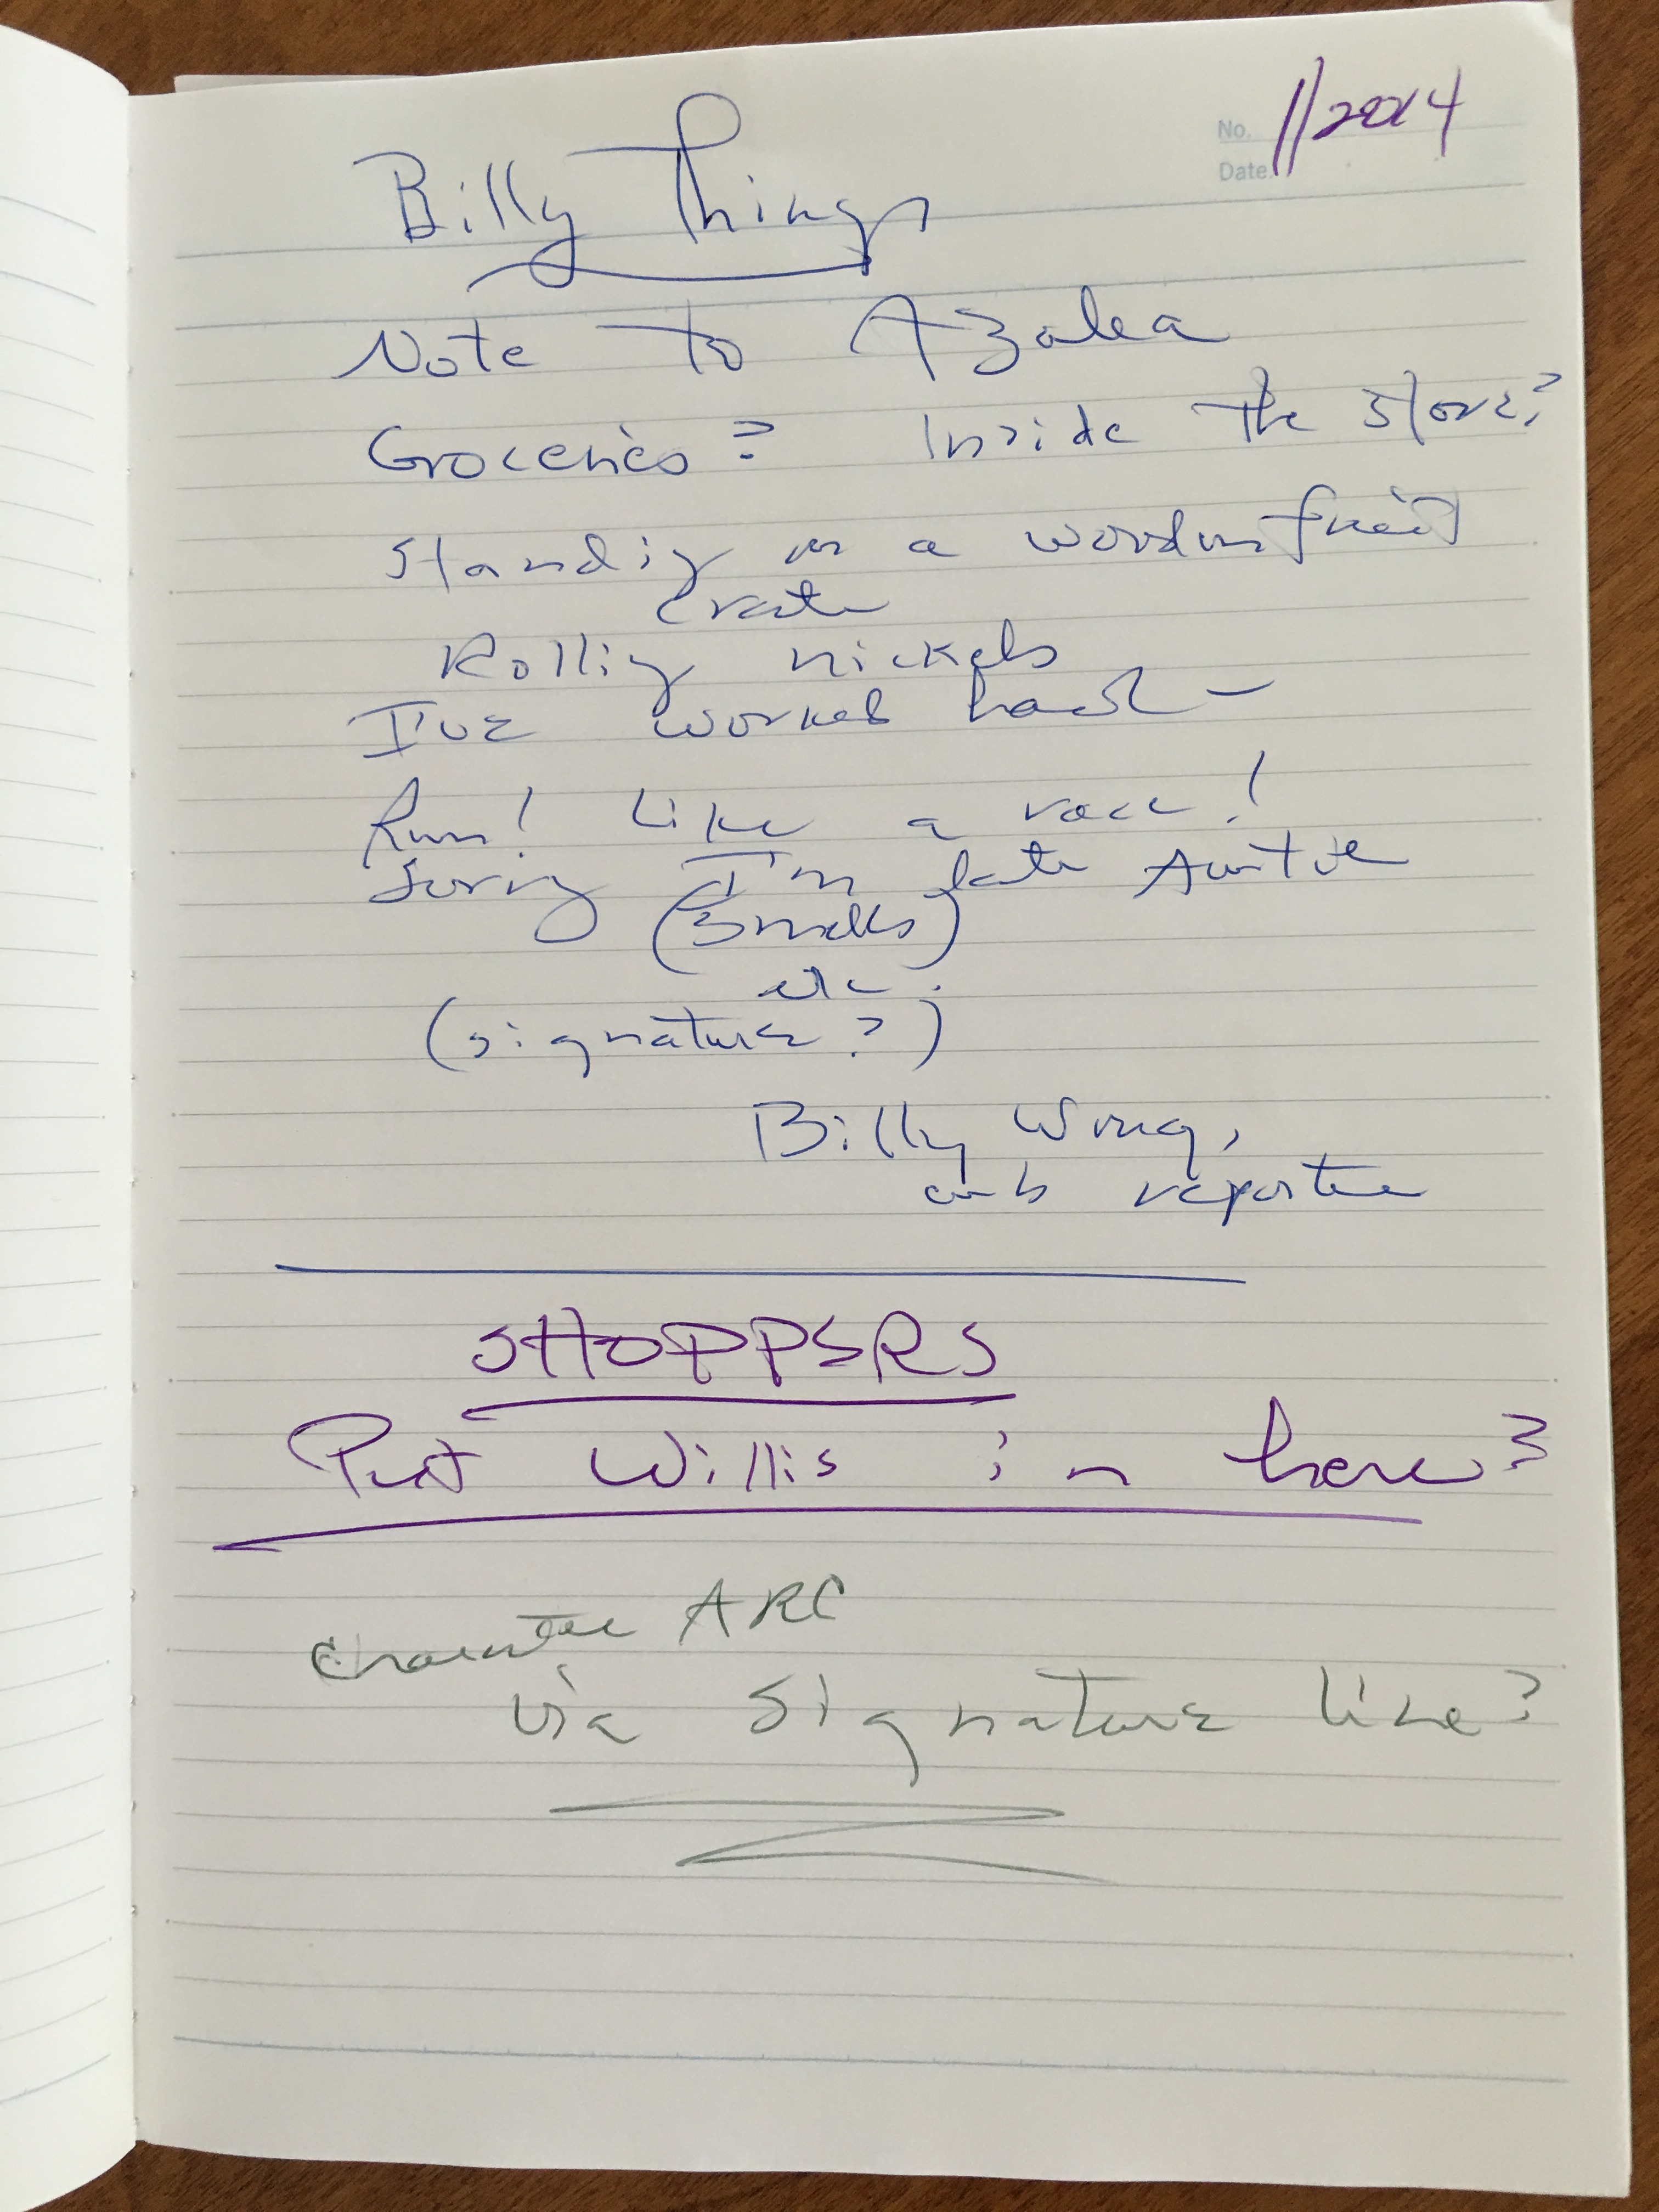 No. 11/2014
Date.
Billy Things
Note to Azalea
Groceries? Inside the store?
Standing on a wooden fruit
crate
Rolling nickels
I've worked hard —
Run! Like a race!
Sorry I'm late Auntie
(smells)
etc.
(signature?)
Billy Wong,
cub reporter
SHOPPERS
Put Willis in here?
character ARC
via signature line?